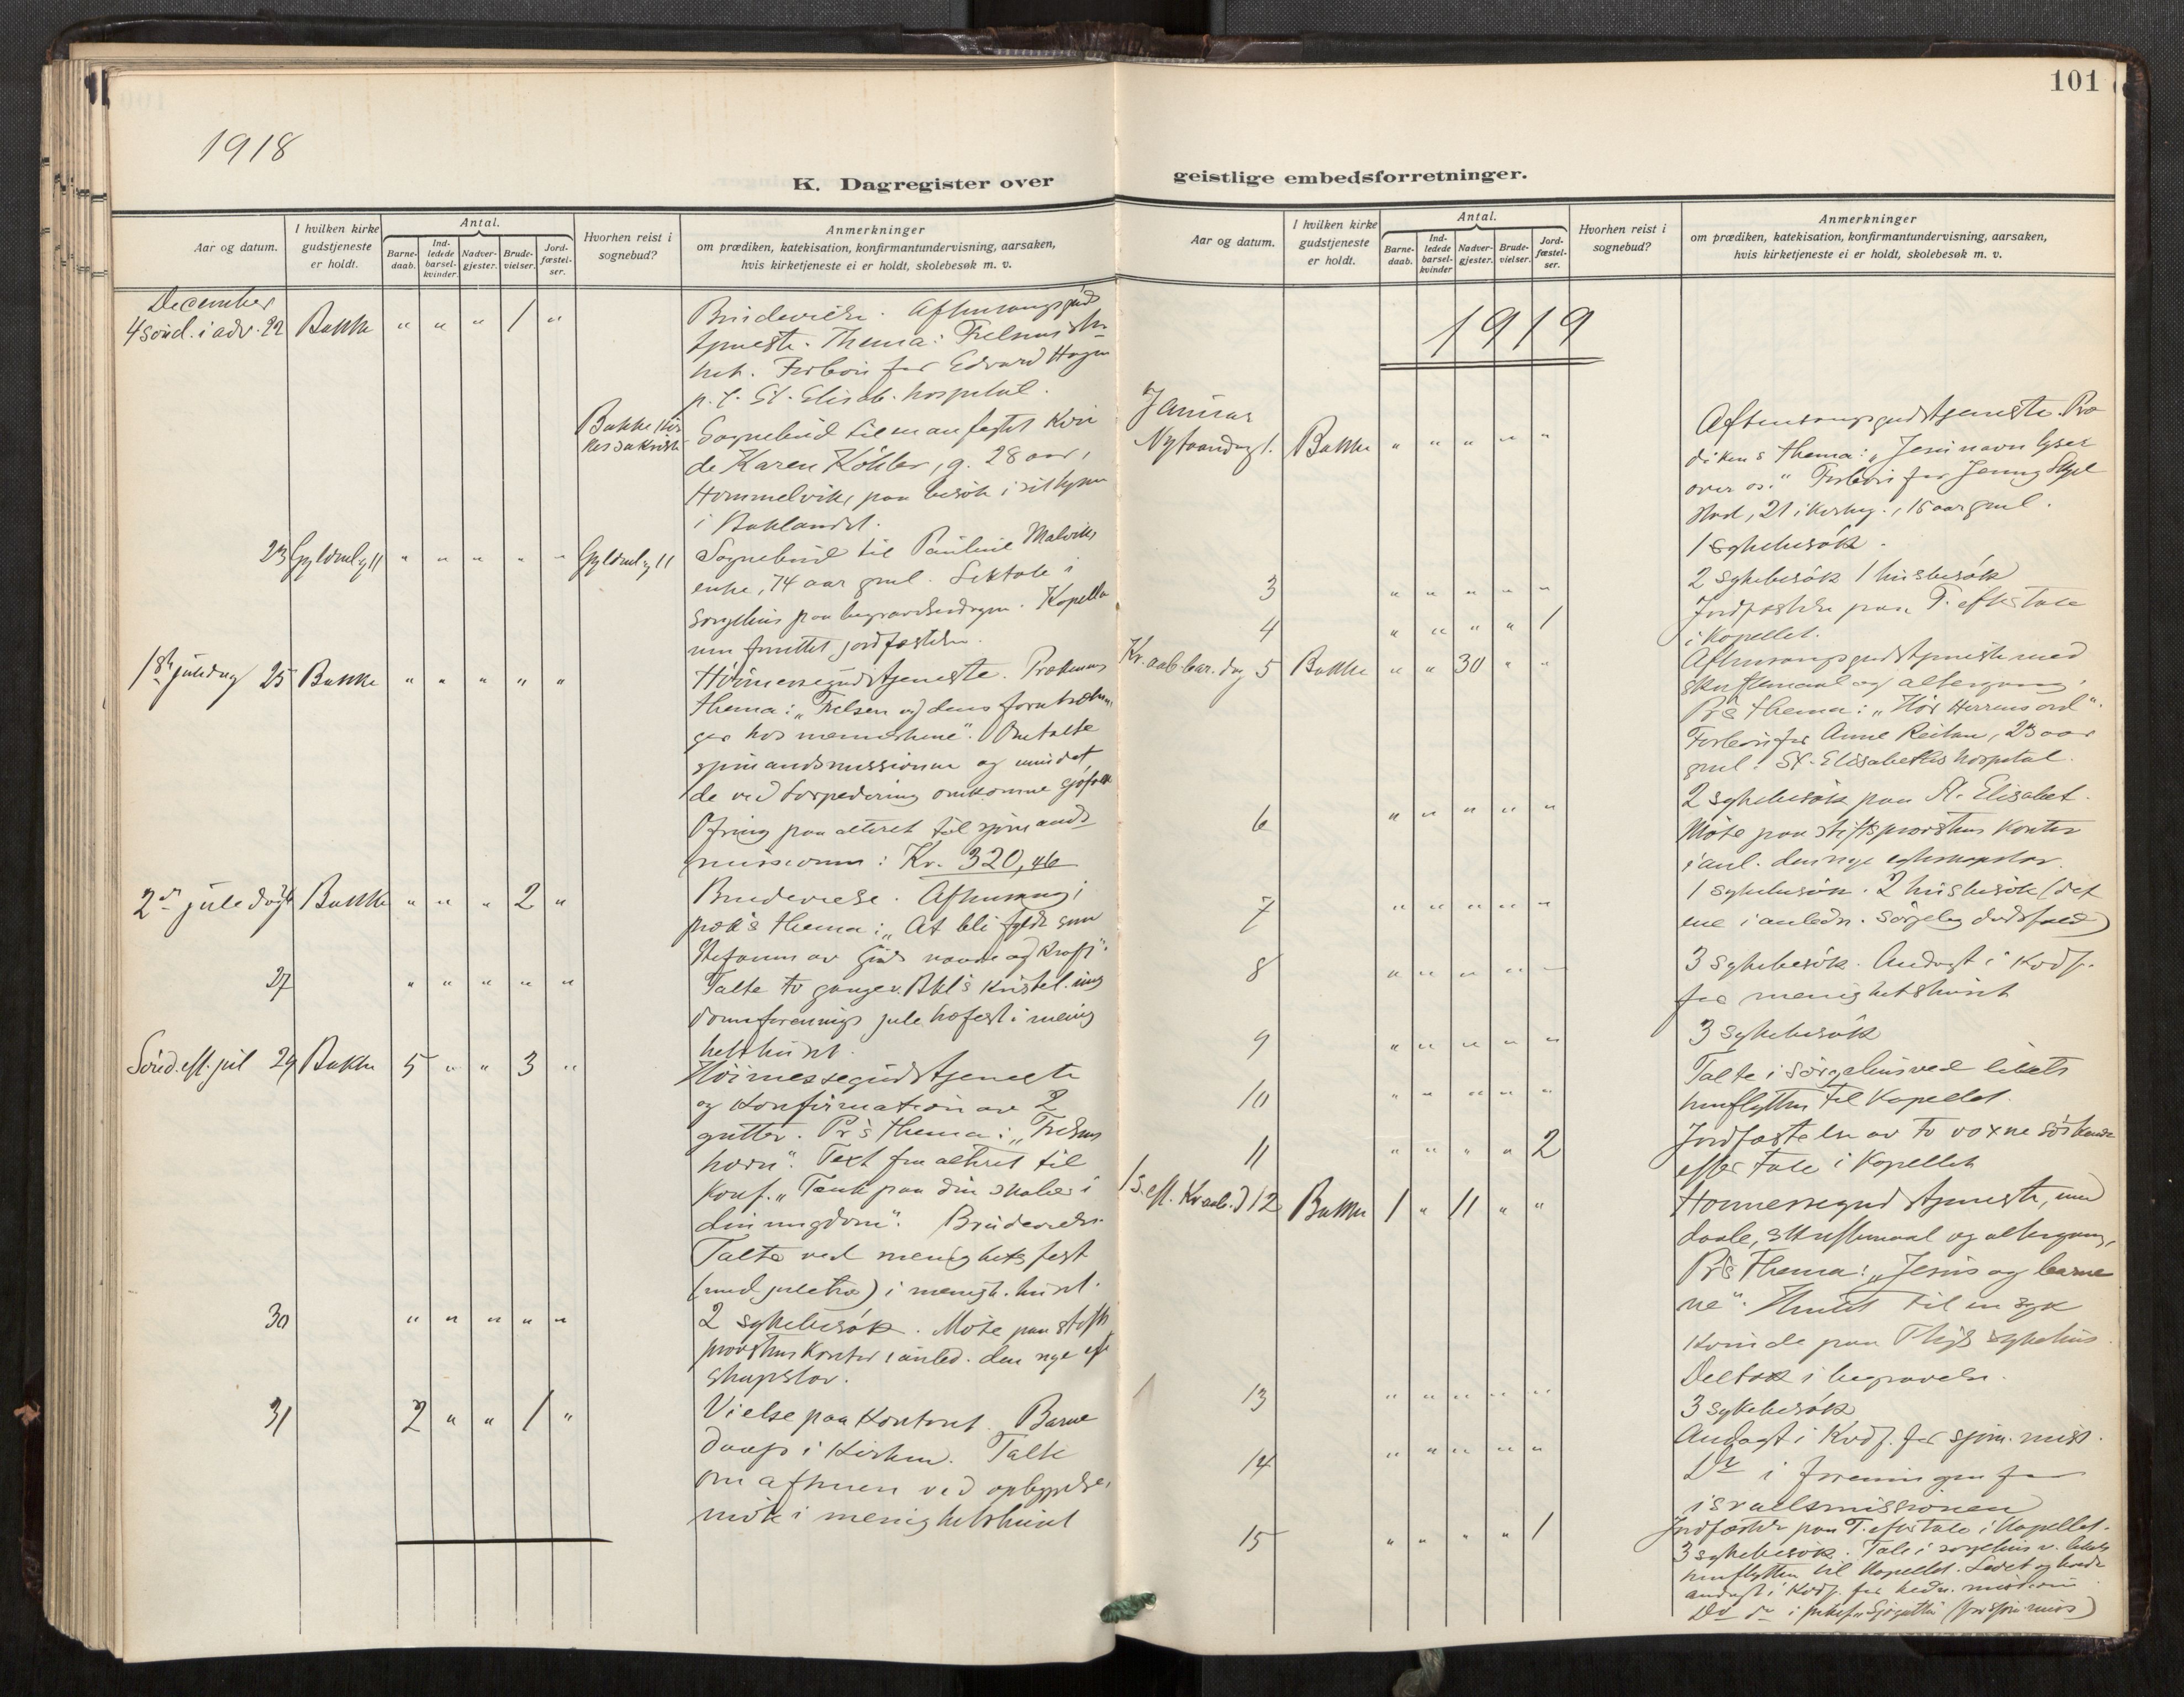 1918
K. Dagregister over
Aar og datum.
I hvilken kirke gudstjeneste er holdt.
Antal.
Barne-daab.
Ind-ledede barsel-kvinder.
Nadver-gjester.
Brude-vielser.
Jord-fæstel-ser.
Hvorhen reist i sognebud?
Anmerkninger
om prædiken, katekisation, konfirmantundervisning, aarsaken,
hvis kirketjeneste ei er holdt, skolebesøk m. v.
December
4 sönd. i adv. 22 Bakke " " " 1 "
Brudevielse. Aftensangsguds
tjeneste. Thema: Frelsens
Forbön for Edvard Hagen
p. t. St. Elisab. hospital.
Bakke kir
kes sakristi
Sognebud til
de Karen Köhler, g. 28 aar,
Hommelvik, paa besök i
i Baklandet.
23 " " " " "
Sognebud til Pauline Malvik,
enke, 74 aar gml. tale i
sörgehus paa begravelsesdagen.
jordfæstelse.
1ste juledag 25 Bakke " " " " "
Höimessegudstjeneste. Prækenens
thema: „Frelsen og dens
ger hos menneskene". Omtalte
sjömandsmissionen og mindet
de ved torpedering omkomne sjöfolk
Ofring paa alteret til sjömands
missionen: Kr. 320,46
2den juledag Bakke " " " 2 "
Brudevielse. Aftensang;
præk's thema: „At bli fyldt som
Stefanus av Guds naade og kraft".
27 " " " " "
Talte to ganger v. Bkl's kristel. ung
domsforenings juletræfest i menig
hetshuset.
Sönd. eft. jul 29 Bakke 5 " " 3 "
Höimessegudstjeneste
og konfirmation av 2
gutter. Pr's thema: „Frelsens
horn". Text fra alteret til
konf. „Tænk paa din skaber i
din ungdom". Brudevielse.
Talte ved menighetsfest
(med juletræ) i menigh. huset.
30 " " " " "
2 sykebesök. Möte paa stifts
provstens kontor i anled. den nye ekte
skapslov.
31 2 " " 1 "
Vielse paa kontoret. Barne
daap i kirken. Talte
om aftenen ved opbyggelses
möte i menighetshuset
101
geistlige embedsforretninger.
Aar og datum.
I hvilken kirke gudstjeneste er holdt.
Antal.
Barne-daab.
Ind-ledede barsel-kvinder
Nadver-gjester.
Brude-vielser.
Jord-fæstel-ser.
Hvorhen reist i sognebud?
Anmerkninger
om prædiken, katekisation, konfirmantundervisning, aarsaken,
hvis kirketjeneste ei er holdt, skolebesøk m. v.
1919
Januar
Nytaarsdag 1. Bakke " " " " "
Aftensangsgudstjeneste. Præ
dikens thema: „Jesu navn lyser
over os." Forbön for Jenny Skjel
stad, 21 i Kirkeg., 15 aar gml.
1 sykebesök.
3 " " " " "
2 sykebesök 1 husbesök
4 " " " " 1
Jordfæstelse paa T. efter tale
i Kapellet.
Kr. aab. bar. dag 5 Bakke " " 30 " "
Aftensangsgudstjeneste med
skriftemaal og altergang.
Pr's thema: „Hör Herrens ord".
Forbön for Anne Reitan, 23 aar
gml. St. Elisabeths hospital.
6 " " " " "
2 sykebesök paa St. Elisabet.
Möte paa stiftsprovstens kontor
i anl. den nye egteskapslov.
7 " " " " "
1 sykebesök. 2 husbesök (det
ene i anledn. sörgelig dödsfald)
8 " " " " "
3 sykebesök. Andagt i kvdf.
for menighetshuset
9 " " " " "
3 sykebesök
10 " " " " "
Talte i sörgehus ved likets
henflytten til Kapellet.
11 " " " " 2
Jordfæstelse av to voxne söskende
efter tale i Kapellet
1 s. eft. Kr. aab. d 12 Bakke 1 " 11 " "
Höimessegudstjeneste, med
daab, skriftemaal og altergang,
Pr's thema: „Jesus og barne
ne". til en syk
kvinde paa Thjs sykehus.
Deltok i begravelse.
13 " " " " "
3 sykebesök
Andagt i kvdf. for sjöm. miss.
14 " " " " "
Do i foreningen for
israelsmissionen
15 " " " " 1
Jordfæstelse paa T. efter tale i Kapellet.
3 sykebesök. Tale i sörgehus v. likets
henflytten til Kapellet. Ledet og holdt
andagt i kvdf. for hedn. missionen
Do do i „Sjögutten" (for sjöm. miss)